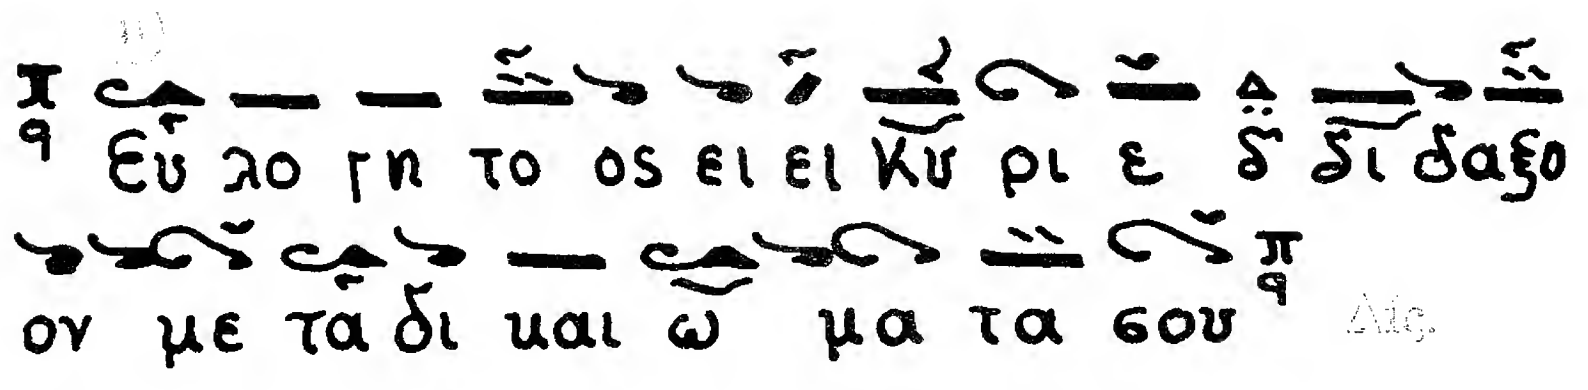 π
q Ευ λο γη το ος ει ει Κυ ρι ε Δ δ δι δαξο π
ον με τα δι και ω μα τα σου q Δίς.